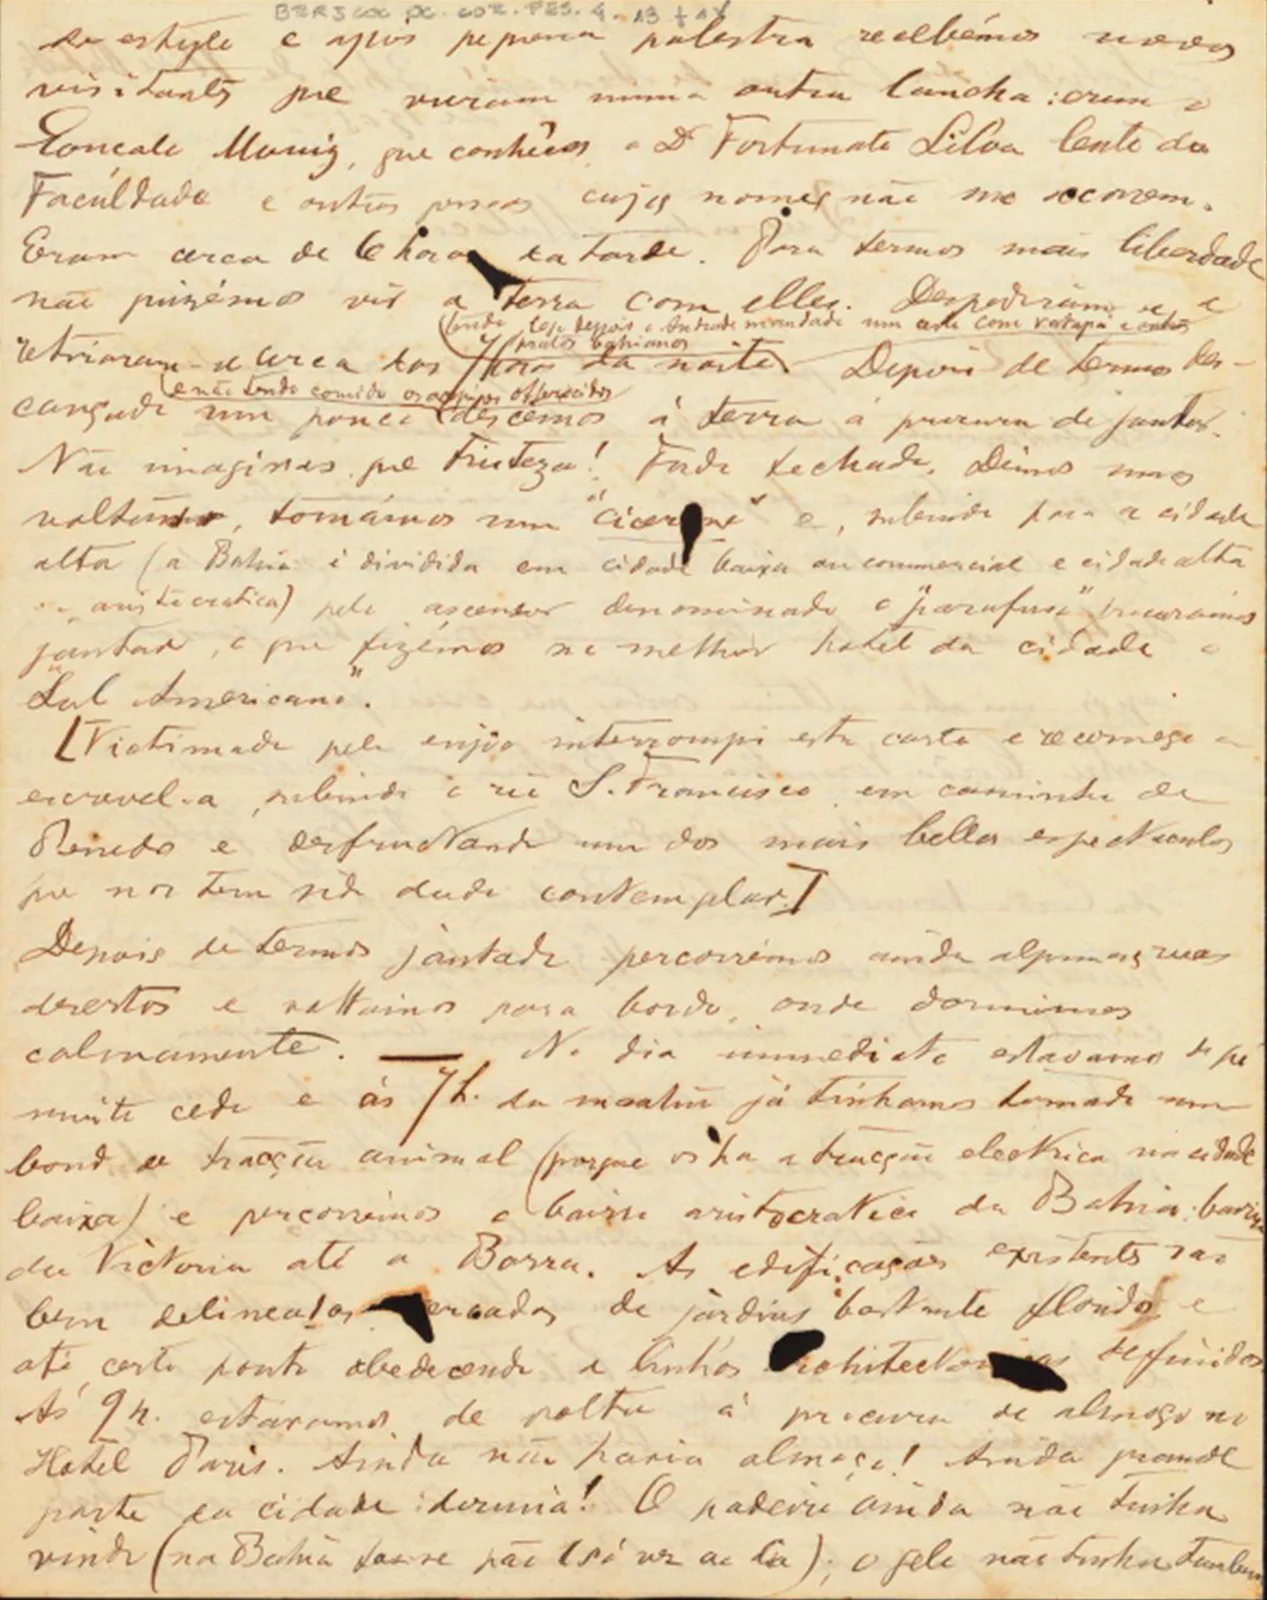 BZRJCOC.OC.COR.PES.4.13
do estylo e após pequena palestra recebêmos novos
visitantes que vieram numa outra lancha: eram o
Gonçalo Muniz, que conhêces, o Dr Fortunato Silva lente da
Facúldade e outras pessoas cujos nomes não me occorrem.
Eram cerca de 6 horas da tarde. Para termos mais liberdade
não quizémos vir a terra com elles. Despediram-se e
(tendo logo depois o Andrade mandado um com vatapá e outros
pratos bahianos
retiraram-se cerca das 7 horas da noite. Depois de termos des-
(e não tendo comido os offerecidos
cançado um pouco descemos á terra á procura de jantar.
Não imaginas que tristeza! Tudo fechado. Démos umas
voltas, tomámos um "cicerone" e, subindo para a cidade
alta (a Bahia é dividida em cidade baixa ou commercial e cidade alta
ou aristocratica) pelo ascensor denominado o "parafuso" procurámos
jantar, o que fizémos no melhor hotel da cidade o
"Sul Americano".
[Victimado pelo enjôo interrompi esta carta e recomeço a
escrevel-a, subindo o rio S. Francisco em caminho de
Penedo e desfructando um dos mais bellos espectaculos
que nos tem sido dado contemplar.]
Depois de termos jantado percorrêmos ainda algumas ruas
desertas e voltamos para bordo, onde dormimos
calmamente. — No dia immediato estavamos de pé
muito cedo e ás 7 h. da manhã já tinhamos tomado um
bond de tracção animal (porque só ha a tracção electrica na cidade
baixa) e percorrêmos o bairro aristocratico da Bahia: bairro
da Victoria até a Barra. As edificações existentes são
bem delineadas cercadas de jardins bastante floridos e
até certo ponto obedecendo a linhas architectonicas definidas
Ás 9 h. estavamos de volta á procura de almoço no
Hotel Paris. Ainda não havia almoço! Ainda grande
parte da cidade dormia! O padeiro ainda não tinha
vindo (na Bahia faz-se pão 1 só vez ao dia); o gelo não tinha tambem